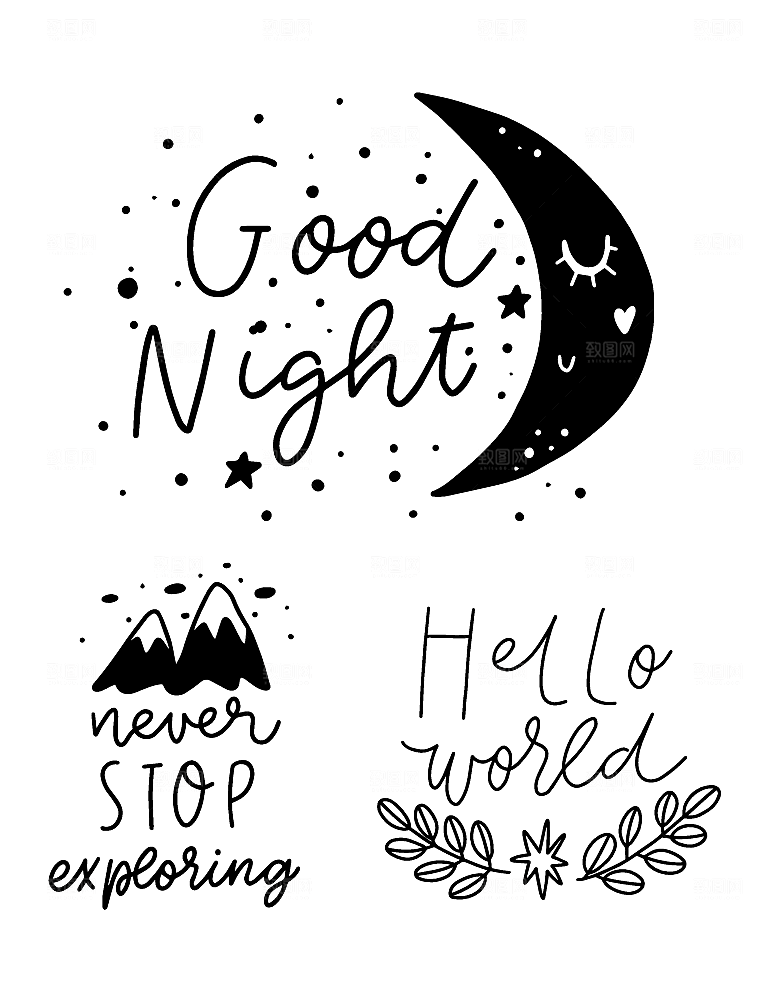 Good
Night
never
STOP
exploring
Hello
world
致图网